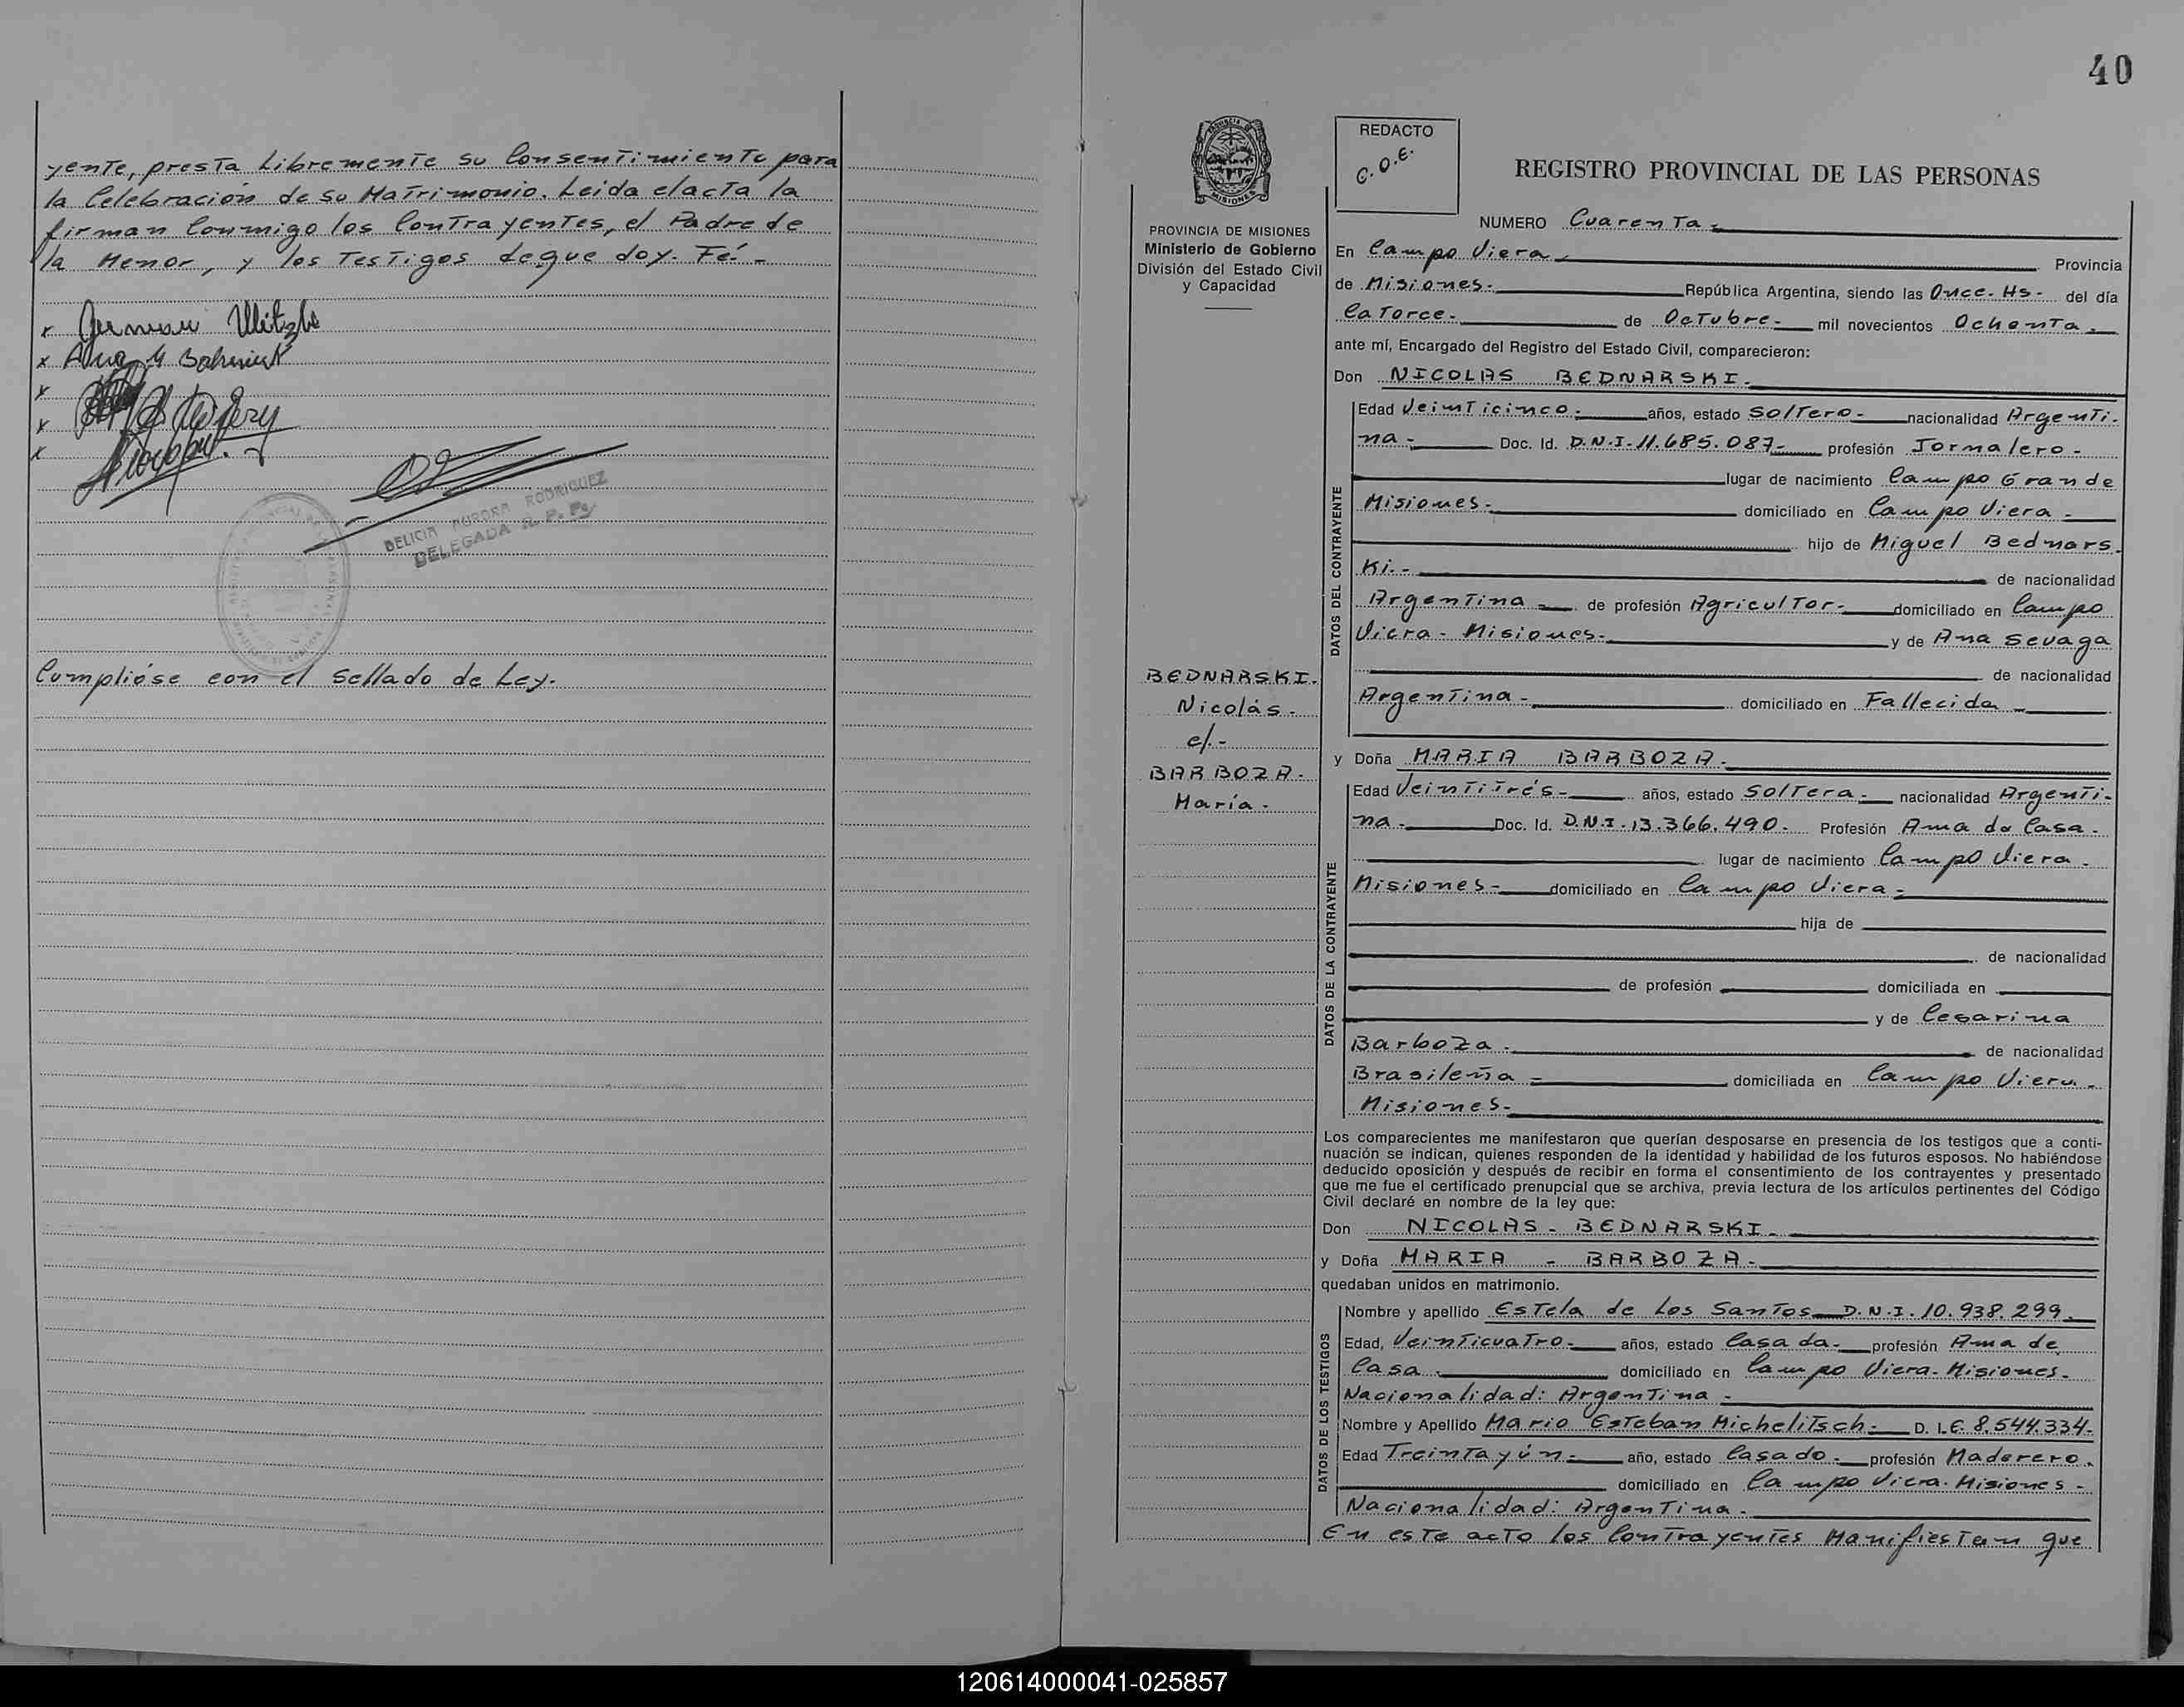 yente, presta Libremente su Consentimiento para
la Celebración de su Matrimonio. Leida el acta la
firman Conmigo los Contrayentes, el Padre de
la Menor, y los Testigos de que doy. Fé.-
x German
x Ana M
x
x
x
DELICIA AURORA RODRIGUEZ
DELEGADA R. P. P.
Cumplióse con el Sellado de Ley.
40
PROVINCIA DE MISIONES
Ministerio de Gobierno
División del Estado Civil
y Capacidad
BEDNARSKI.
Nicolás.-
c/.-
BARBOZA.-
María.-
REDACTO
C.O.E.
REGISTRO PROVINCIAL DE LAS PERSONAS
NUMERO Cuarenta.-
En Campo Viera.- Provincia
de Misiones.- República Argentina, siendo las Once.Hs.- del día
Catorce.- de Octubre.- mil novecientos Ochenta.-
ante mí, Encargado del Registro del Estado Civil, comparecieron:
Don NICOLAS BEDNARSKI.-
DATOS DEL CONTRAYENTE
Edad Veinticinco.- años, estado Soltero.- nacionalidad Argenti-
na.- Doc. Id. D.N.I.11.685.087.- profesión Jornalero.-
lugar de nacimiento Campo Grande
Misiones.- domiciliado en Campo Viera.-
hijo de Miguel Bednars-
Ki.- de nacionalidad
Argentina.- de profesión Agricultor.- domiciliado en Campo
Viera - Misiones.- y de Ana Sevaga
de nacionalidad
Argentina.- domiciliado en Fallecida.-
y Doña MARIA BARBOZA.-
DATOS DE LA CONTRAYENTE
Edad Veintitrés.- años, estado Soltera.- nacionalidad Argenti-
na.- Doc. Id. D.N.I.13.366.490.- Profesión Ama de Casa.-
lugar de nacimiento Campo Viera.-
Misiones.- domiciliado en Campo Viera.-
hija de
de nacionalidad
de profesión domiciliada en
y de Cesarina
Barboza.- de nacionalidad
Brasileña.- domiciliada en Campo Viera.-
Misiones.-
Los comparecientes me manifestaron que querían desposarse en presencia de los testigos que a conti-
nuación se indican, quienes responden de la identidad y habilidad de los futuros esposos. No habiéndose
deducido oposición y después de recibir en forma el consentimiento de los contrayentes y presentado
que me fue el certificado prenupcial que se archiva, previa lectura de los artículos pertinentes del Código
Civil declaré en nombre de la ley que:
Don NICOLAS - BEDNARSKI.-
y Doña MARIA - BARBOZA.-
quedaban unidos en matrimonio.
DATOS DE LOS TESTIGOS
Nombre y apellido Estela de Los Santos D.N.I.10.938.299.-
Edad, Veinticuatro.- años, estado Casada.- profesión Ama de
Casa.- domiciliado en Campo Viera.Misiones.-
Nacionalidad: Argentina.-
Nombre y Apellido Mario Esteban Michelitsch.- D. I.E.8.544.334.-
Edad Treinta y ún.- año, estado Casado.- profesión Maderero.
domiciliado en Campo Viera.Misiones.-
Nacionalidad: Argentina.-
En este acto los Contrayentes Manifiestan que
120614000041-025857